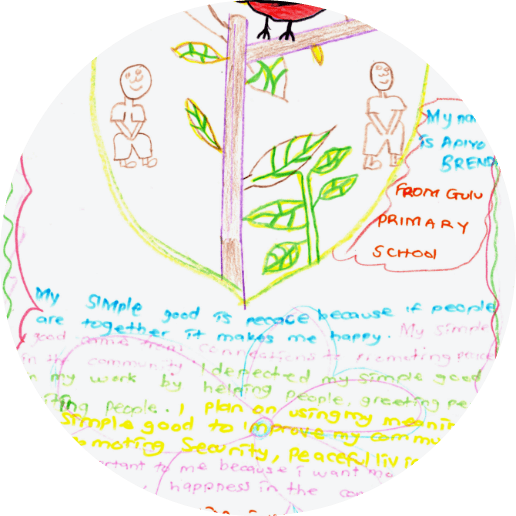 My na
is Apiyo
BREND
FROM GULU
PRIMARY
SCHOOL
My SIMPLE good is peoace because if people
are together it makes me happy. My simple
good to promoting peace
in the community I depected my simple good
n my work by helping people, greeting pe
iting people. I plan on using my meanin
Simple good to improve my commu
omoting Security, peaceful livin
ortant to me because i want mo
, happness in the com